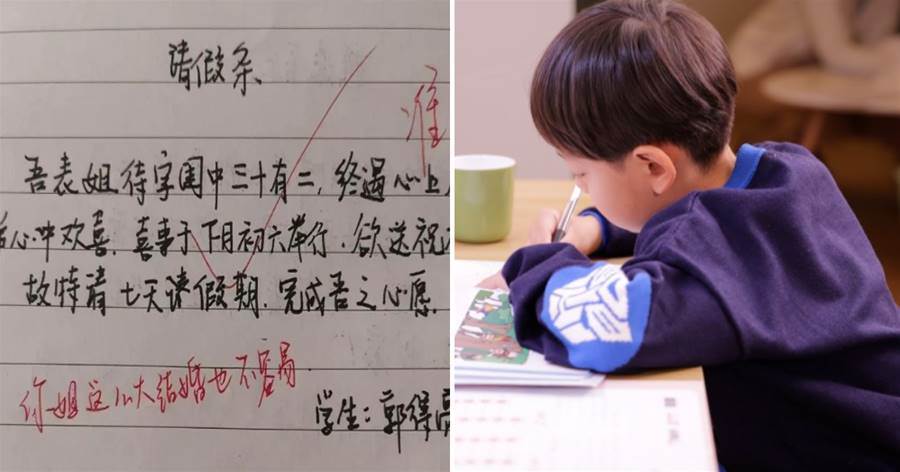 请假条
准
吾表姐待字闺中三十有二,终遇心上
心中欢喜.喜事于下月初六举行.欲送祝
故特请七天课假期.完成吾之心愿.
你姐这么大结婚也不容易.
学生:郭得